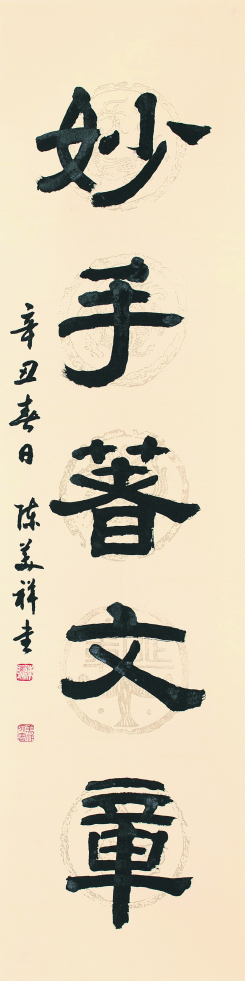 妙手著文章
辛丑春日 陈美祥书